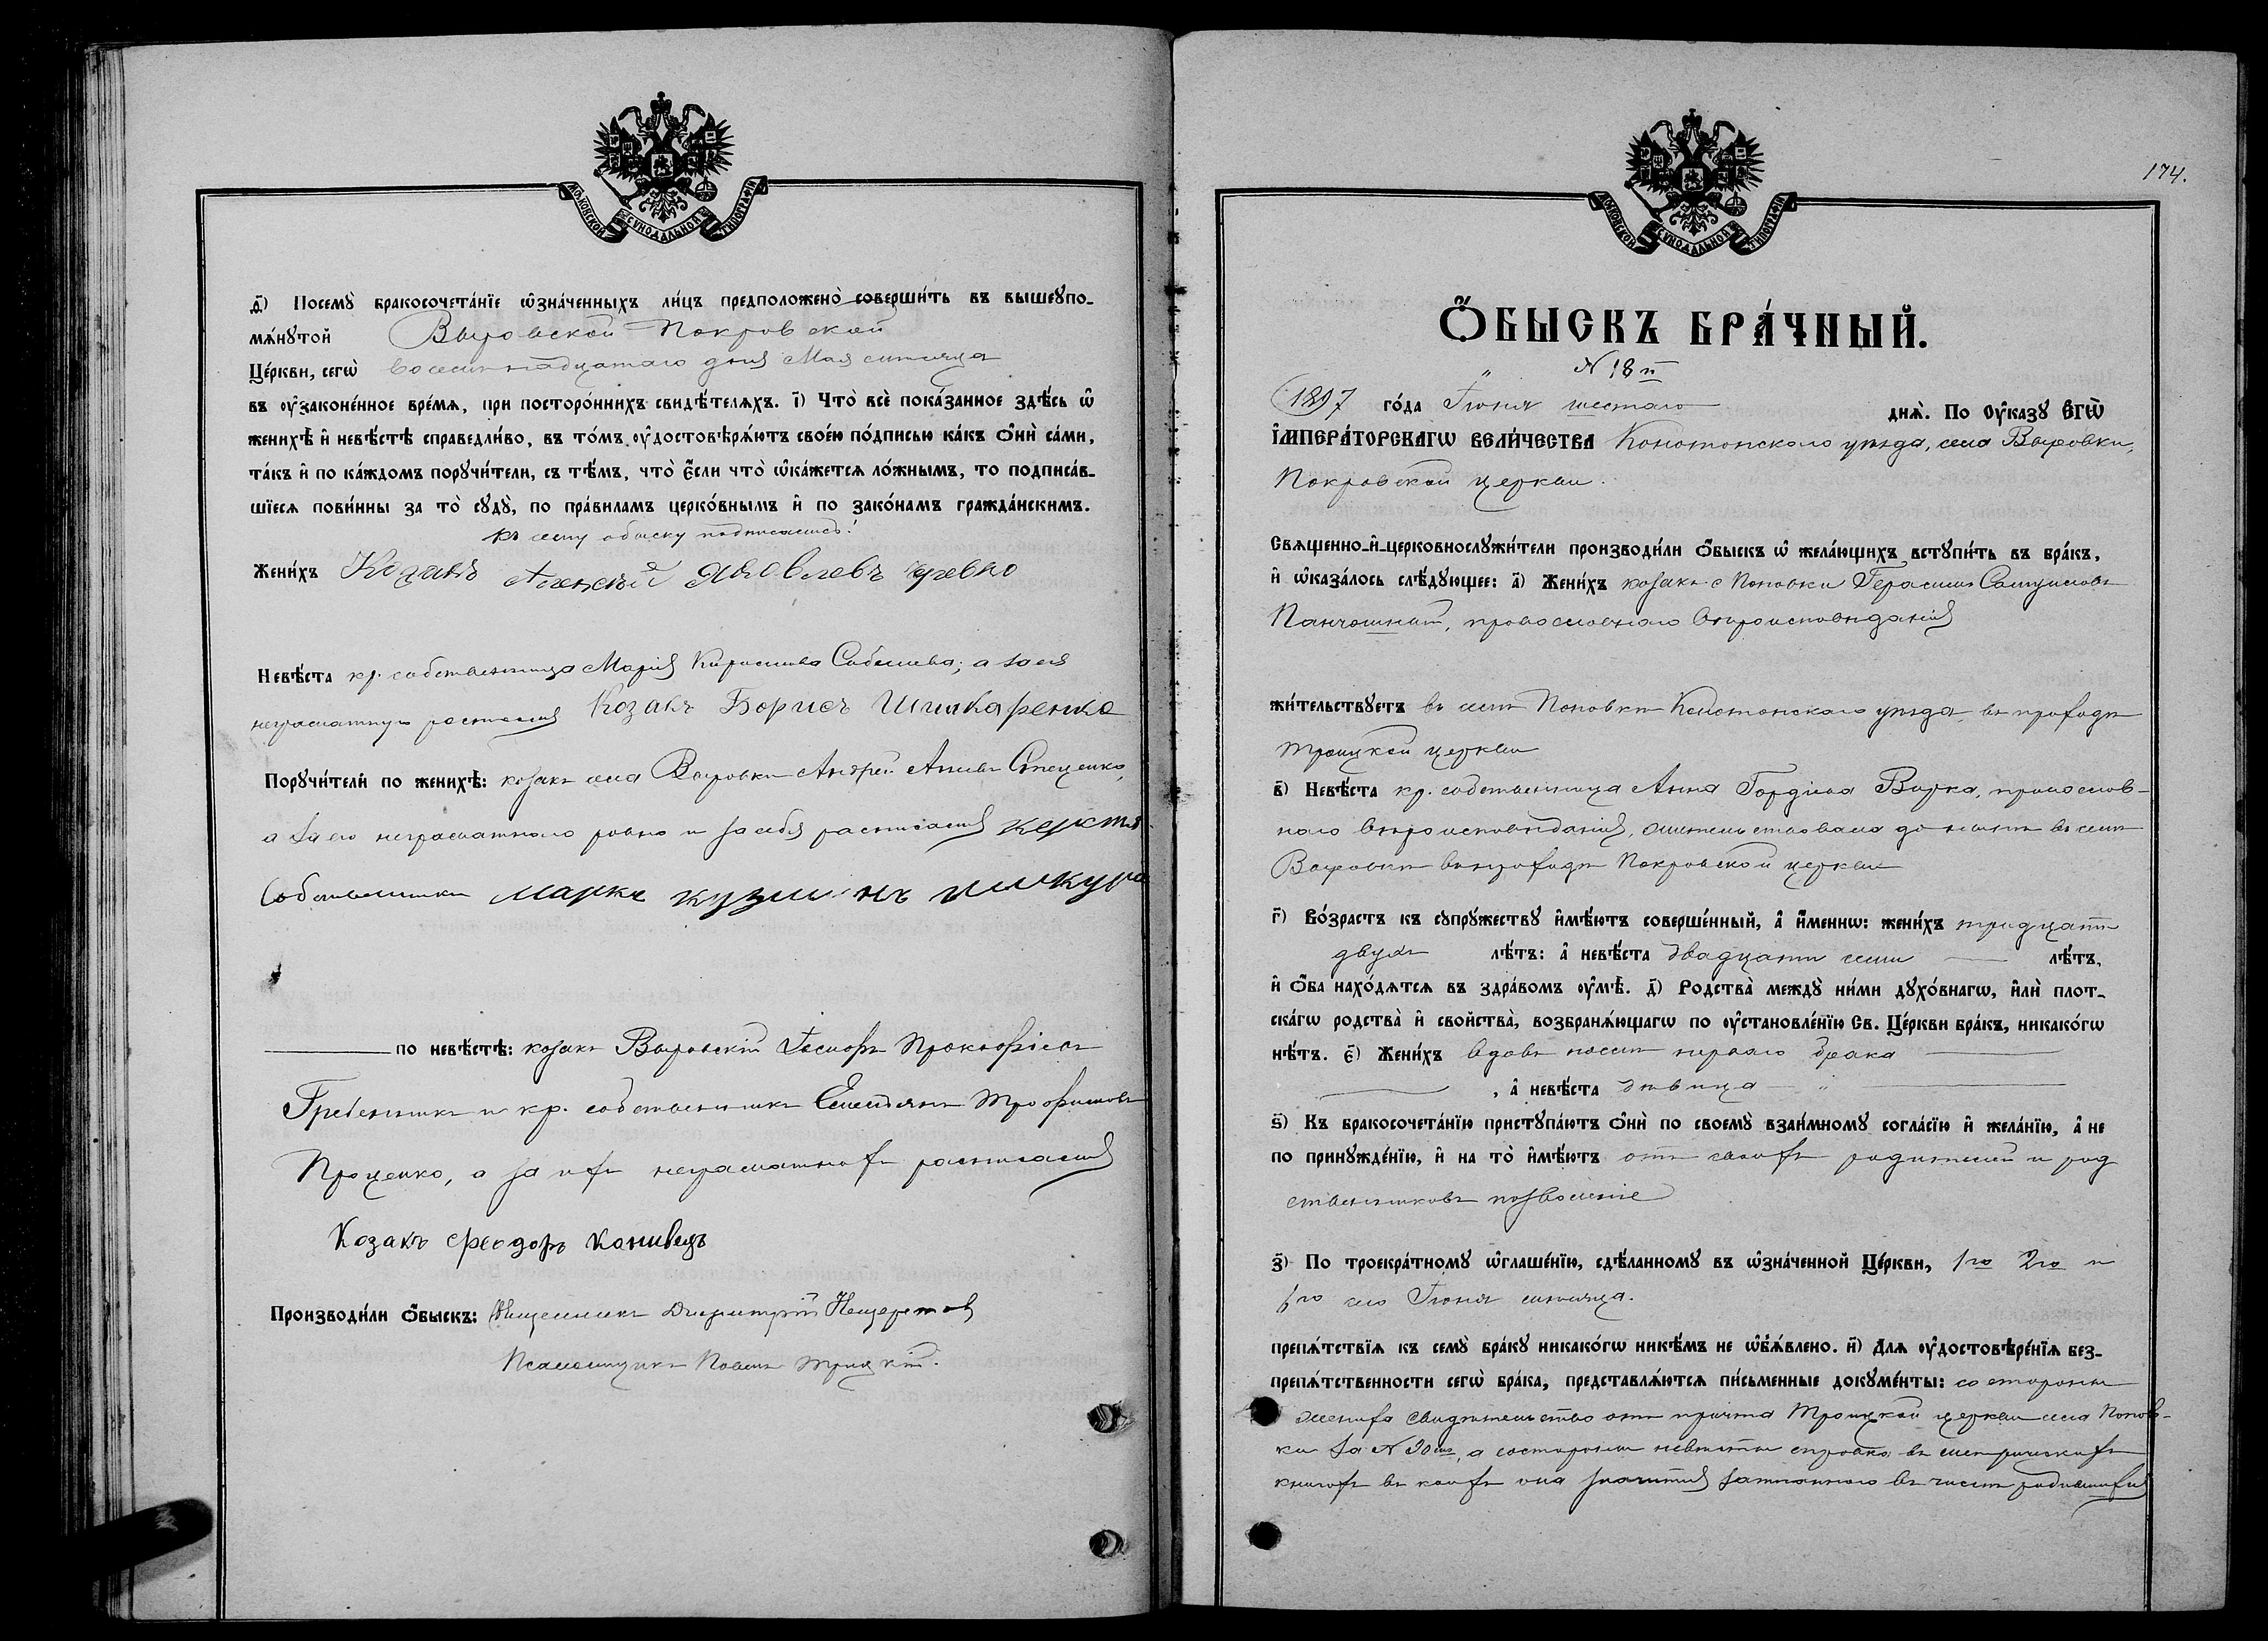 МОСКОВСКОЙ СѴНОДАЛЬНОЙ ТИПОГРАФІИ
д҃) Посемꙋ̀ бракосочета́нїе ѡ҆зна́ченныхъ ли́цъ предположено̀ совершить въ вышеꙋпо-
мѧ́нꙋтой Выровской Покровской
Це́ркви, сегѡ̀ восемнадцатаго дня Мая мѣсяца
въ ᲂу҆законе́нное вре́мѧ, при посторо́ннихъ свидѣ́телѧхъ. і҃) Что̀ всѐ пока́занное здѣ́сь ѡ҆
женихѣ̀ и҆ невѣ́стѣ справедли́во, въ то́мъ ᲂу҆достовѣрѧ́ютъ свое́ю по́дписью ка́къ ѻ҆нѝ са́ми,
та́къ и҆ по ка́ждомъ порꙋчи́тели, съ тѣ́мъ, что̀ є҆́сли что̀ ѡ҆ка́жетсѧ ло́жнымъ, то подписа́в-
шїесѧ пови́нны за то̀ сꙋдꙋ̀, по пра́виламъ церко́внымъ и҆ по зако́намъ гражда́нскимъ.
къ сему обыску подписались:
Жени́хъ Козакъ Алексѣй Яковлевъ
Невѣ́ста кр. собственница Марія за нея
неграмотную росписался Козакъ Борисъ Шинкаренко
Порꙋчи́тели по женихѣ̀: козакъ села Выровки Андрей Стеценко,
а за его неграмотнаго ровно и за себя росписался
собственникъ Маркъ Кузминъ Шкура
по невѣ́стѣ: козакъ Выровскій Іосифъ Прокофіевъ
Гребенникъ и кр. собственникъ Емельянъ Трофимовъ
Проценко, а за ихъ неграмотныхъ росписался
Козакъ Феодоръ Конивець
Производи́ли ѻ҆́быскъ: Священникъ Димитрій Нещеретовъ
Псаломщикъ Павелъ Троицкій.
174.
МОСКОВСКОЙ СѴНОДАЛЬНОЙ ТИПОГРАФІИ
Ѻ҆́БЫСКЪ БРА́ЧНЫЙ.
N 18й
1897 го́да Іюня шестаго днѧ̀. По Оу҆ка́зꙋ Є҆ГѠ̀
І҆МПЕРА́ТОРСКАГѠ ВЕЛИ́ЧЕСТВА Конотопскаго уѣзда, села Выровки,
Покровской церкви.
Свѧщенно-и҆-церковнослꙋжи́тели производи́ли ѻ҆́быскъ ѡ҆ жела́ющихъ встꙋпи́ть въ бра́къ,
и҆ ѡ҆каза́лось слѣ́дꙋющее: а҃) Жени́хъ козакъ с Поповки Герасимъ Самуиловъ
православнаго вѣроисповѣданія
жи́тельствꙋетъ въ селѣ Поповкѣ Конотопскаго уѣзда, въ приходѣ
Троицкой церкви
в҃) Невѣ́ста кр. собственница Анна Гордіева Вирка, православ-
наго вѣроисповѣданія, жительствовала до нынѣ въ селѣ
Выровкѣ въ приходѣ Покровской церкви
г҃) Во́зрастъ къ сꙋпрꙋ́жествꙋ и҆мѣ́ютъ соверше́нный, а҆ и҆́меннѡ: жени́хъ тридцати
двухъ лѣ́тъ: а҆ невѣ́ста двадцати семи лѣ́тъ,
и҆ ѻ҆́ба нахо́дѧтсѧ въ здра́вомъ ᲂу҆мѣ̀. д҃) Родства̀ междꙋ̀ ни́ми дꙋхо́внагѡ, и҆лѝ плот-
ска́гѡ родства̀ и҆ свойства̀, возбранѧ́ющагѡ по ᲂу҆становле́нїю Св. Це́ркви бра́къ, никако́гѡ
нѣ́тъ. є҃) Жени́хъ вдовъ послѣ перваго брака
, а҆ невѣ́ста дѣвица
ѕ҃) Къ бракосочета́нїю пристꙋпа́ютъ ѻ҆нѝ по своемꙋ̀ взаи́мномꙋ согла́сїю и҆ жела́нїю, а҆ не
по принꙋжде́нїю, и҆ на то̀ и҆мѣ́ютъ отъ своихъ родителей и род
ственниковъ позволеніе
з҃) По троекра́тномꙋ ѡ҆глаше́нїю, сдѣ́ланномꙋ въ ѡ҆зна́ченной Це́ркви, 1го 2го и
6го сего Іюня мѣсяца.
препѧ́тствїѧ къ семꙋ̀ бра́кꙋ никако́гѡ никѣ́мъ не ѡ҆б̾ѧ́влено. и҃) Длѧ ᲂу҆достовѣре́нїѧ без-
препѧ́тственности сегѡ̀ бра́ка, представлѧ́ютсѧ пи́сьменные докꙋме́нты: со стороны
жениха свидѣтельство отъ причта Троицкой церкви села Попов-
ки за N 20мъ, а со стороны невѣсты справка въ метрическихъ
книгахъ въ коихъ она значится записанною въ числѣ родившихся